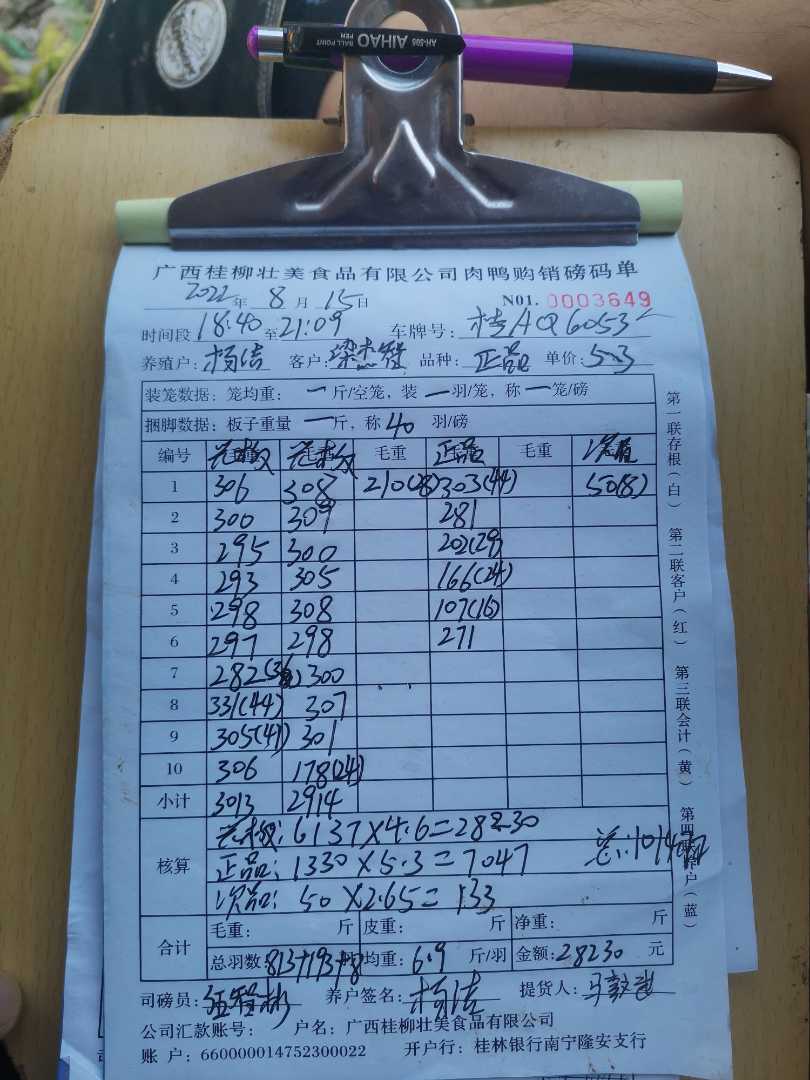 AIHAO
AH-595
BALL POINT PEN
广西桂柳壮美食品有限公司肉鸭购销磅码单
2022年 8月 15日 N01. 0003649
时间段 18:40 至 21:09 车牌号: 桂AQ6053
养殖户: 杨洁 客户: 品种: 正品 单价: 5.3
装笼数据: 笼均重: 一 斤/空笼, 装 一 羽/笼, 称 一 笼/磅
捆脚数据: 板子重量 一 斤, 称 40 羽/磅
编号 毛重 正品 毛重
1 306 308 210(28) 303(44) 50(8)
2 300 309 281
3 295 300 202(29)
4 293 305 166(24)
5 298 308 107(16)
6 297 298 271
7 282 300
8 331(44) 307
9 305(41) 301
10 306 178(24)
小计 3013 2914
核算
6137×4.6=28230
正品: 1330×5.3=7047
次品: 50×2.65=133
合计
毛重: 斤 皮重: 斤 净重: 斤
总羽数: 813+193+8 均重: 6.9 斤/羽 金额: 28230 元
司磅员: 养户签名: 杨洁 提货人:
公司汇款账号: 户名: 广西桂柳壮美食品有限公司
账 户: 660000014752300022 开户行: 桂林银行南宁隆安支行
第一联存根(白) 第二联客户(红) 第三联会计(黄) 第四联养户(蓝)